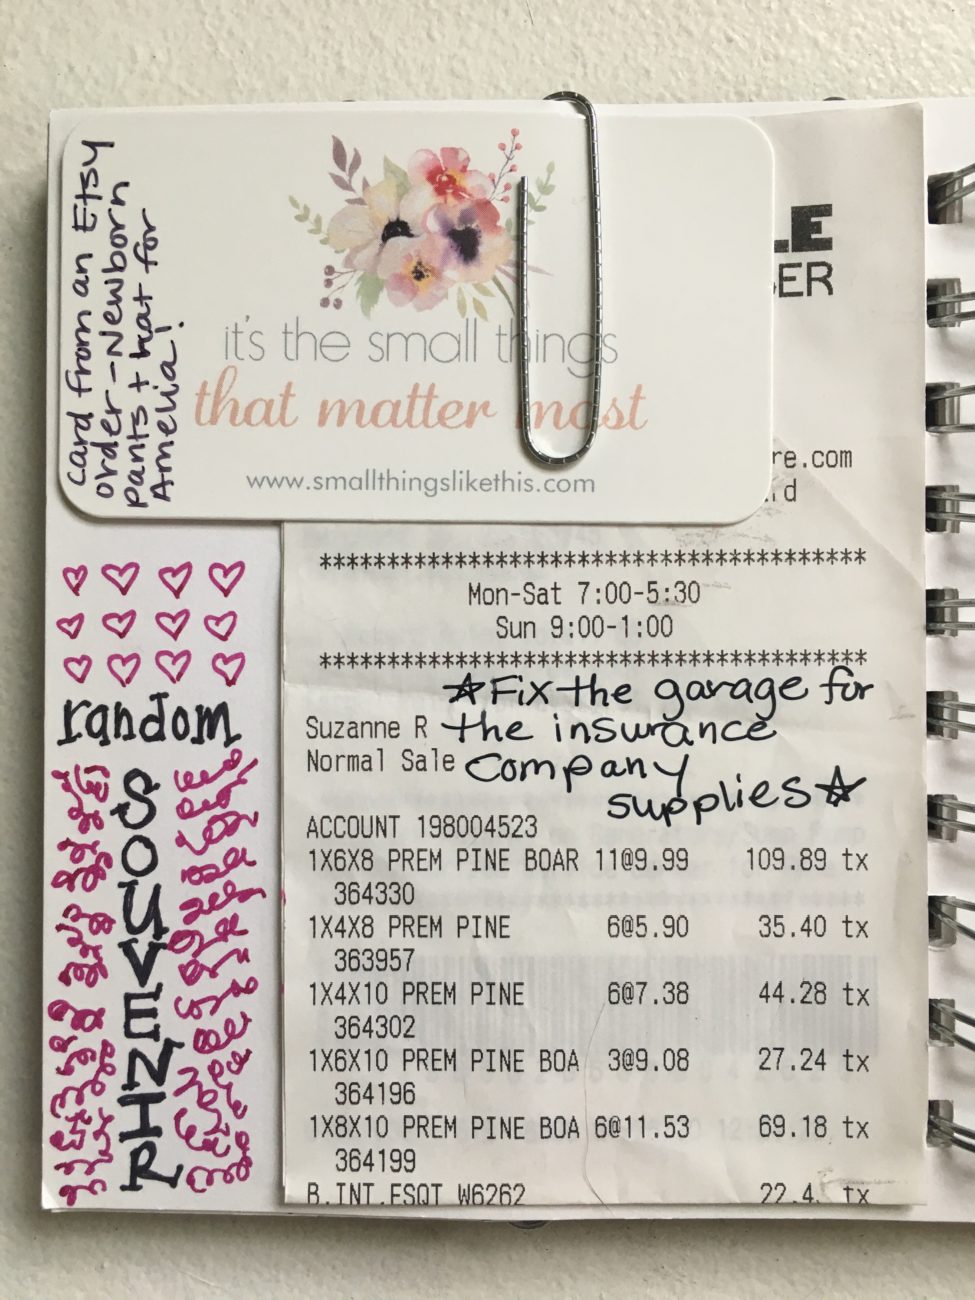 card from an Etsy
order - Newborn
pants + hat for
Amelia!
it's the small things
that matter most
www.smallthingslikethis.com
LE
BER
re.com
rd
***************************************
Mon-Sat 7:00-5:30
Sun 9:00-1:00
***************************************
☆Fix the garage for
the insurance
company
supplies☆
Suzanne R
Normal Sale
ACCOUNT 198004523
1X6X8 PREM PINE BOAR 11@9.99 109.89 tx
364330
1X4X8 PREM PINE 6@5.90 35.40 tx
363957
1X4X10 PREM PINE 6@7.38 44.28 tx
364302
1X6X10 PREM PINE BOA 3@9.08 27.24 tx
364196
1X8X10 PREM PINE BOA 6@11.53 69.18 tx
364199
B.INT.ESQT W6262 22.4 tx
random
SOUVENIR